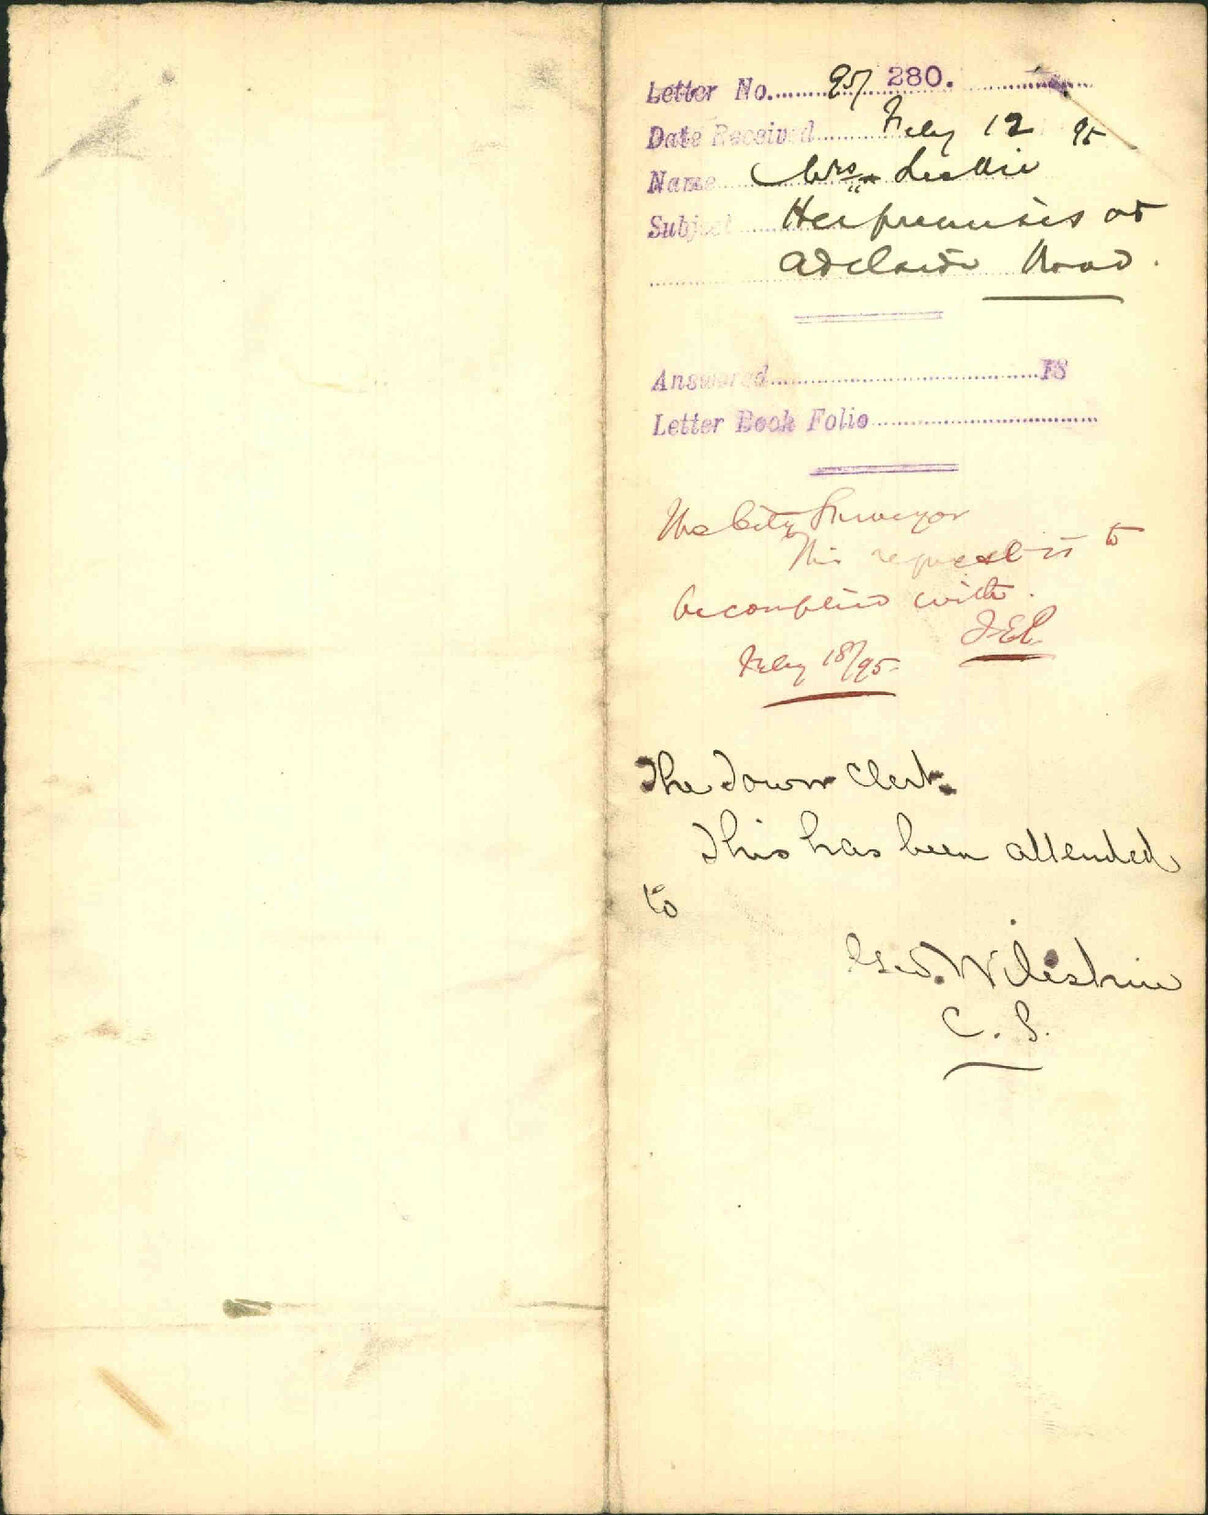 Letter No. 95/ 280.
Date Received Feby 12 95
Name Mrs Leslie
Subject Her premises at
Adelaide Road.
Answered 18
Letter Book Folio
The City Surveyor
This request is to
be complied with.
Feby 18/95
The Town Clerk
This has been attended
to
Geo. Wilshire
C. S.